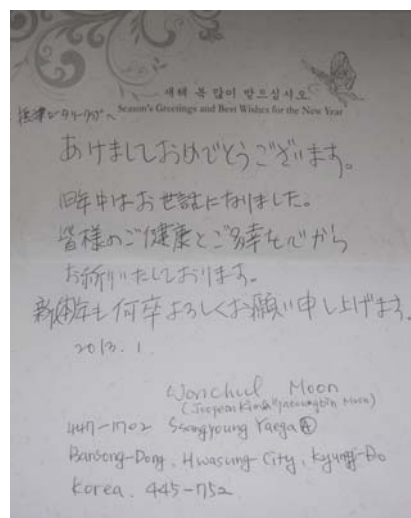 새해 복 많이 받으십시오
Season's Greetings and Best Wishes for the New Year
ロータリークラブへ
あけましておめでとうございます。
旧年中はお世話になりました。
皆様のご健康とご多幸を心から
お祈りいたしております。
新年も何卒よろしくお願い申し上げます。
2013. 1
Wonchul Moon
447-1702 Ssangyoung Yaega ④
Bansong-Dong, Hwasung City, Kyungi-Do
Korea. 445-752